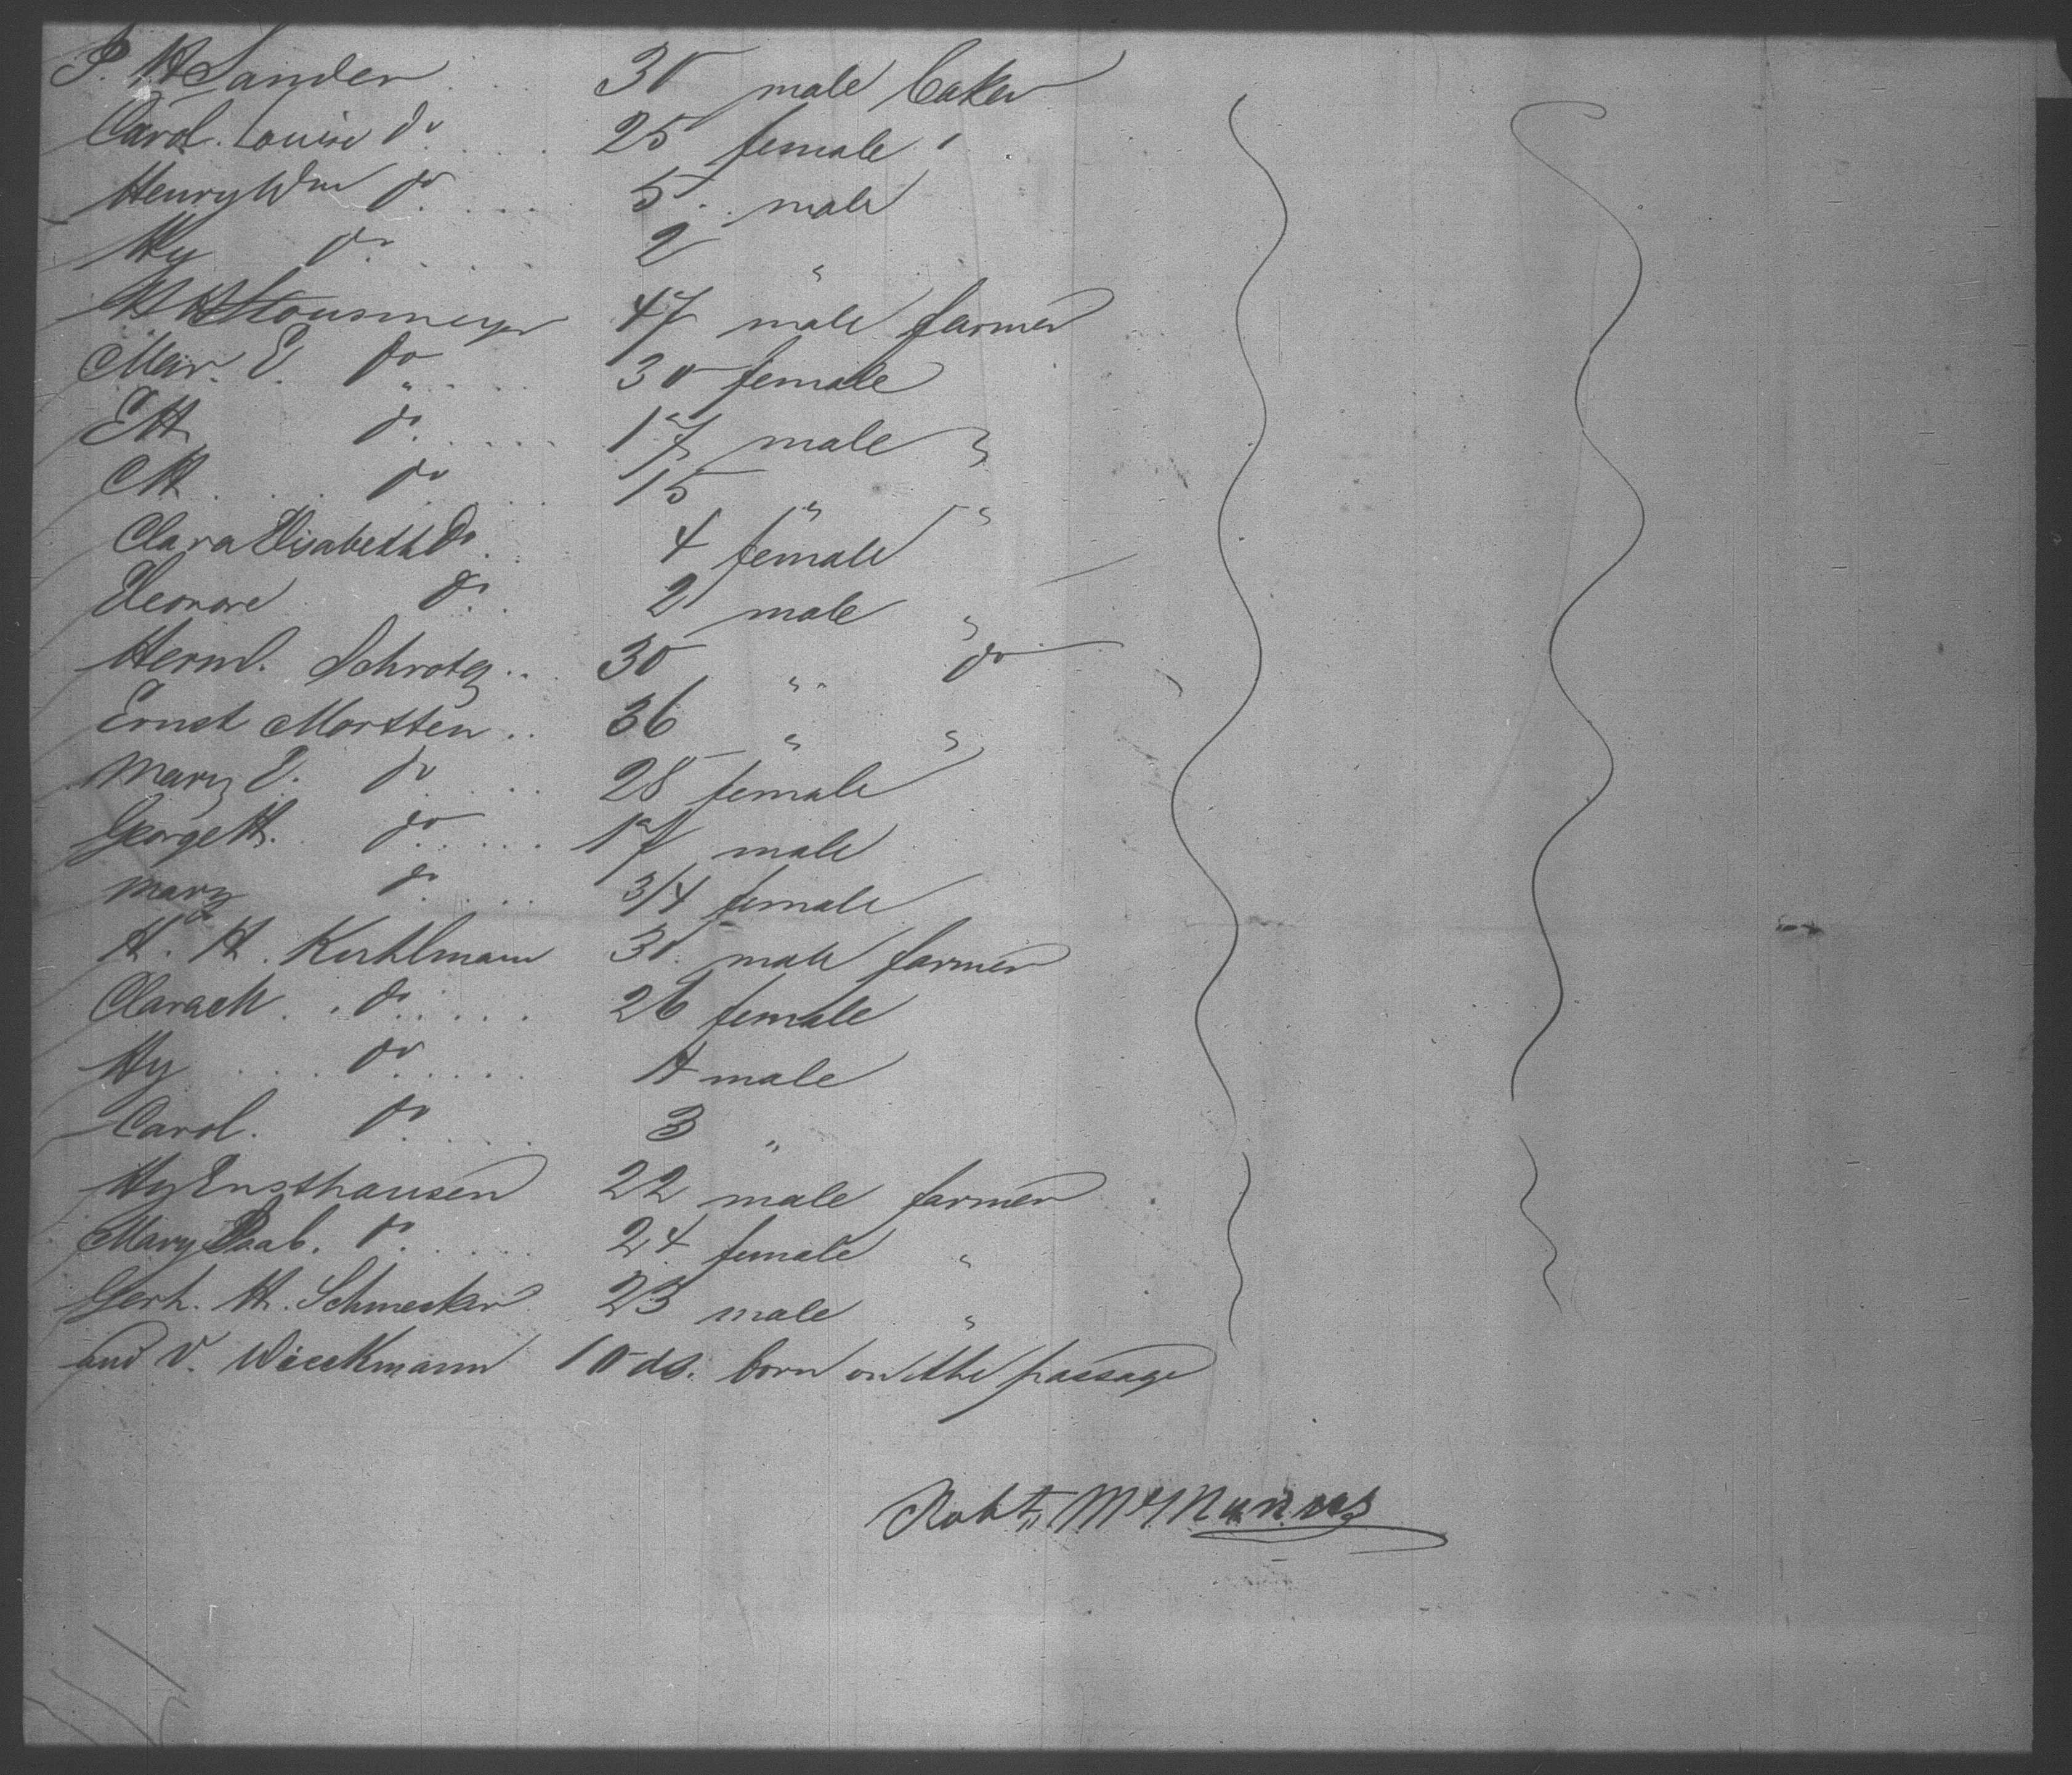 P. H Sander . . . 30 male baker
Carol. Louise do . . . 25 female "
Henry Wm do . . . . 5 . . male
Hy do . . . . 2 "
Housmeyer 47 male farmer
Mar. E. do . . . . 30 female
E H do . . . . . 17 male "
C H . . . do . . . 15 " "
Clara Elisabeth do . 4 female
Eleonore do . . 2 male "
Herm. Schroter . . 30 " do
Ernst Mortten . . 36 " "
Mary E. do . . . . 28 female
George H. do . . . . . 17 male
Mary do . . . . 3/4 female
H. H. Kuhlmann 30 . male farmer
Clara M . . do . . . . . 26 female
Hy . . . . do . . . . . 4 male
Carol. do . . . . 3 "
Hy Ensthausen 22 male farmer
Mary do . . . . 24 female "
Gerh. H. Schmecker 23 male "
and V. Wieckmann 10 ds. born on the passage
Robt. McManus